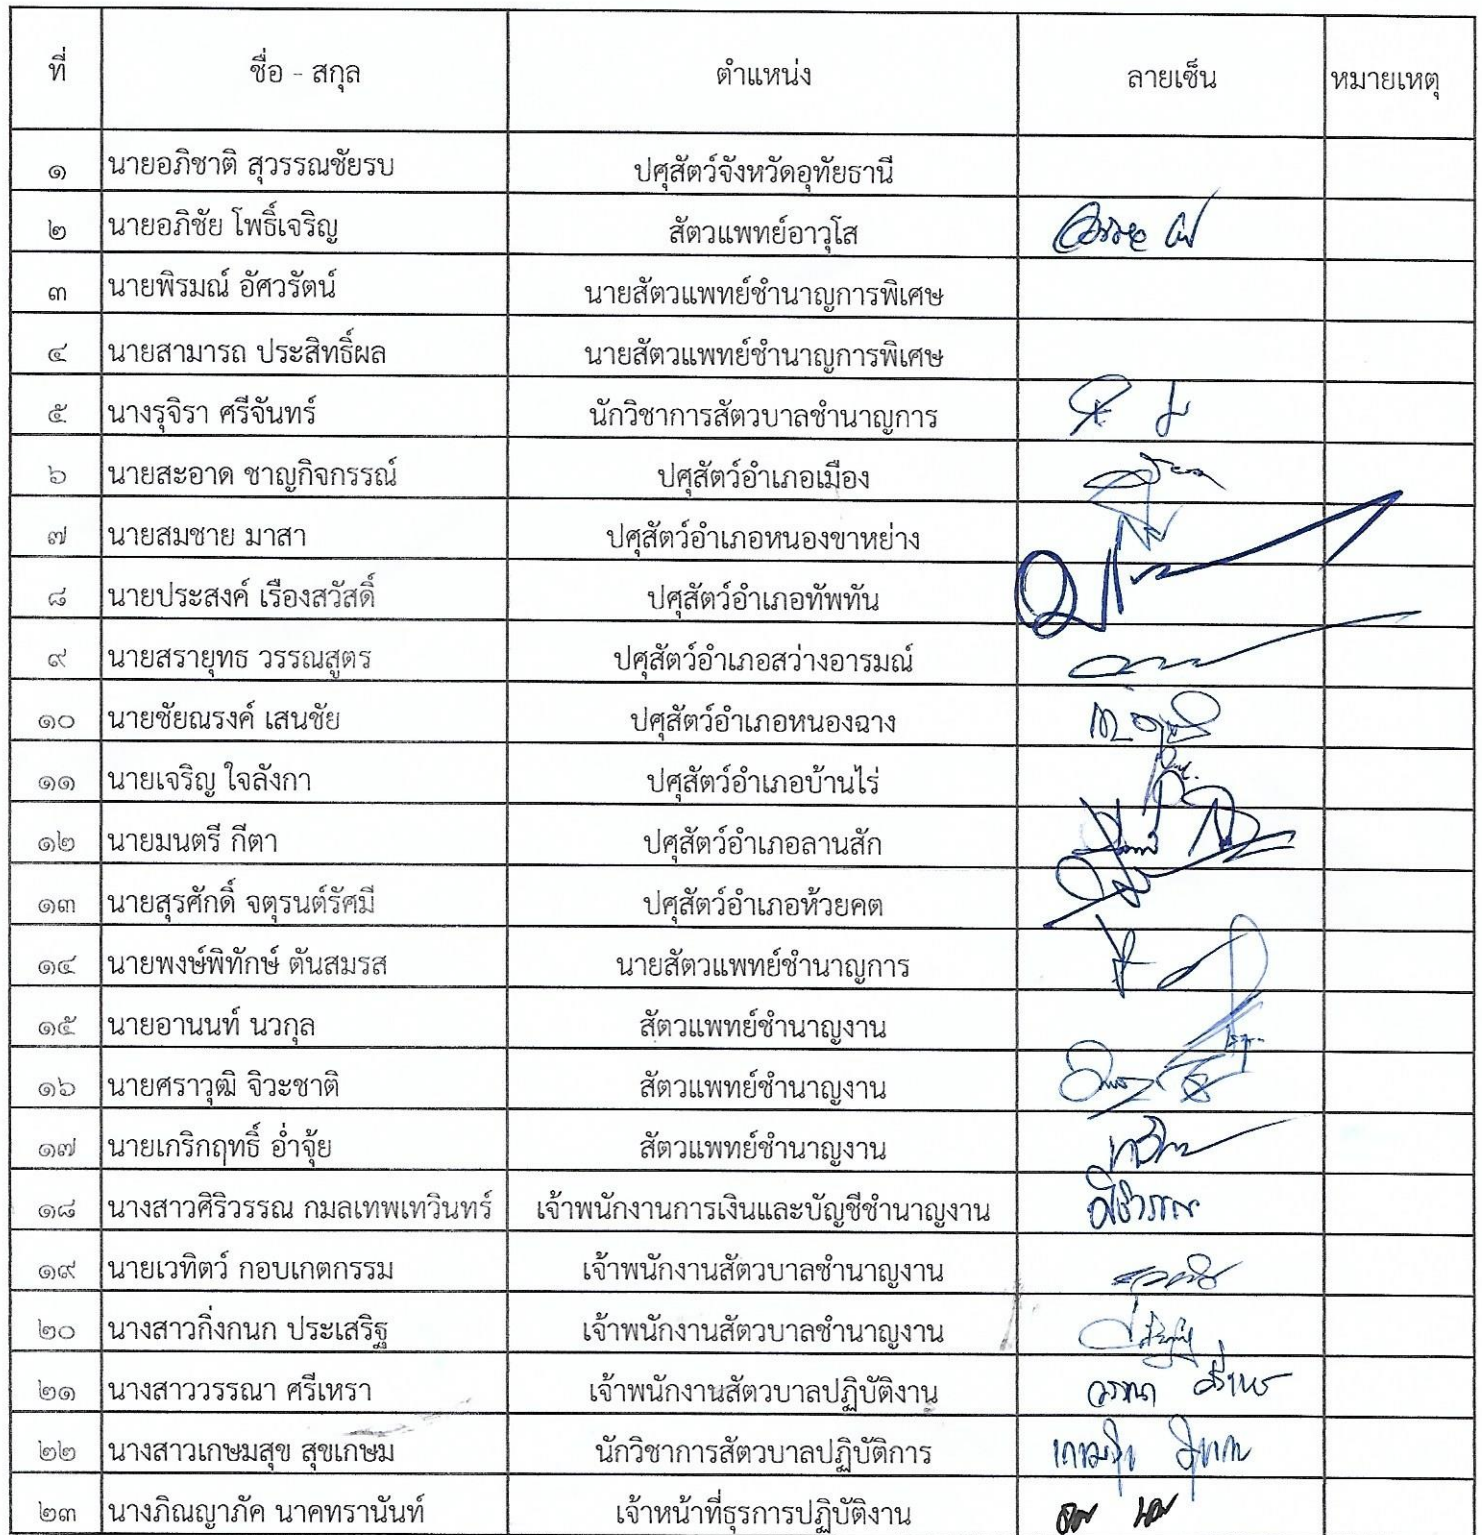 ที่ ชื่อ - สกุล ตำแหน่ง ลายเซ็น หมายเหตุ
๑ นายอภิชาติ สุวรรณชัยรบ ปศุสัตว์จังหวัดอุทัยธานี
๒ นายอภิชัย โพธิ์เจริญ สัตวแพทย์อาวุโส
๓ นายพิรมณ์ อัศวรัตน์ นายสัตวแพทย์ชำนาญการพิเศษ
๔ นายสามารถ ประสิทธิ์ผล นายสัตวแพทย์ชำนาญการพิเศษ
๕ นางรุจิรา ศรีจันทร์ นักวิชาการสัตวบาลชำนาญการ
๖ นายสะอาด ชาญกิจกรรณ์ ปศุสัตว์อำเภอเมือง
๗ นายสมชาย มาสา ปศุสัตว์อำเภอหนองขาหย่าง
๘ นายประสงค์ เรืองสวัสดิ์ ปศุสัตว์อำเภอทัพทัน
๙ นายสรายุทธ วรรณสูตร ปศุสัตว์อำเภอสว่างอารมณ์
๑๐ นายชัยณรงค์ เสนชัย ปศุสัตว์อำเภอหนองฉาง
๑๑ นายเจริญ ใจลังกา ปศุสัตว์อำเภอบ้านไร่
๑๒ นายมนตรี กีตา ปศุสัตว์อำเภอลานสัก
๑๓ นายสุรศักดิ์ จตุรนต์รัศมี ปศุสัตว์อำเภอห้วยคต
๑๔ นายพงษ์พิทักษ์ ตันสมรส นายสัตวแพทย์ชำนาญการ
๑๕ นายอานนท์ นวกุล สัตวแพทย์ชำนาญงาน
๑๖ นายศราวุฒิ จิวะชาติ สัตวแพทย์ชำนาญงาน
๑๗ นายเกริกฤทธิ์ อ่ำจุ้ย สัตวแพทย์ชำนาญงาน
๑๘ นางสาวศิริวรรณ กมลเทพเทวินทร์ เจ้าพนักงานการเงินและบัญชีชำนาญงาน
๑๙ นายเวทิตว์ กอบเกตกรรม เจ้าพนักงานสัตวบาลชำนาญงาน
๒๐ นางสาวกิ่งกนก ประเสริฐ เจ้าพนักงานสัตวบาลชำนาญงาน
๒๑ นางสาววรรณา ศรีเหรา เจ้าพนักงานสัตวบาลปฏิบัติงาน
๒๒ นางสาวเกษมสุข สุขเกษม นักวิชาการสัตวบาลปฏิบัติการ
๒๓ นางภิญญาภัค นาคทรานันท์ เจ้าหน้าที่ธุรการปฏิบัติงาน